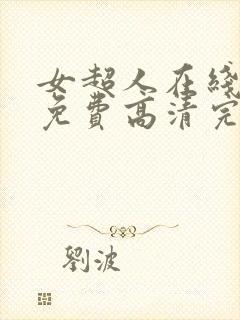 女超人在线
免費高清完
劉波